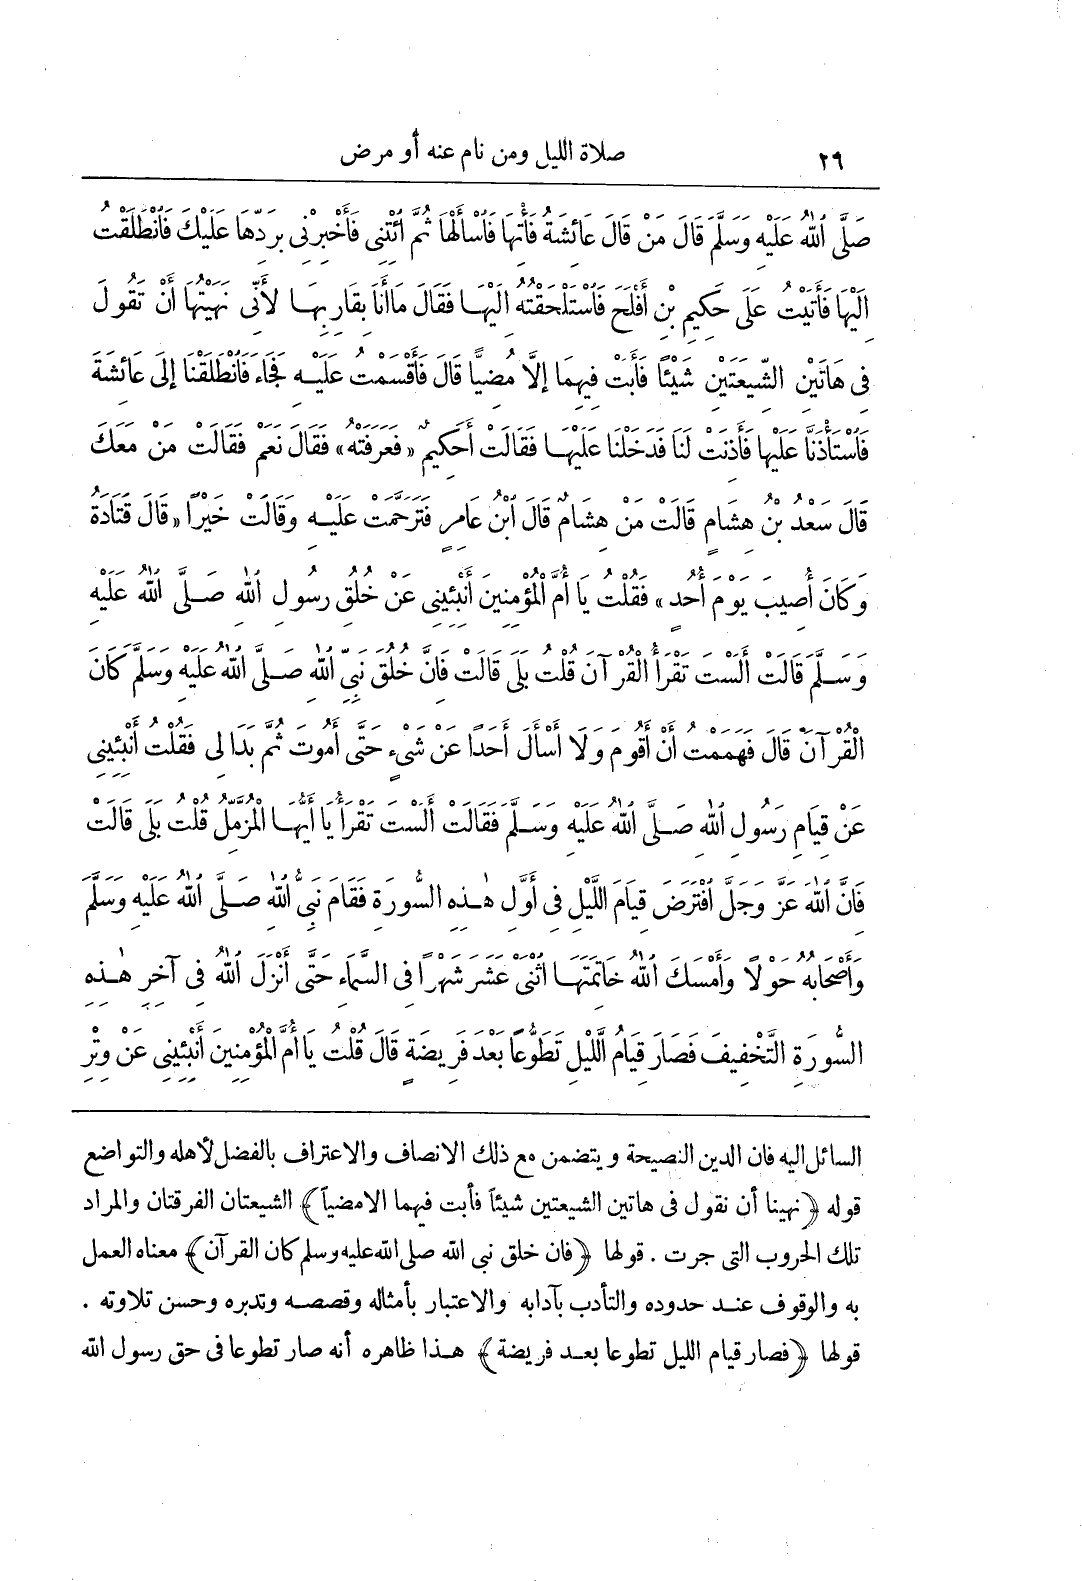 ٢٦ صلاة الليل ومن نام عنه أو مرض
صَلَّى اللهُ عَلَيْهِ وَسَلَّمَ قَالَ مَنْ قَالَ عَائِشَةُ فَأْتِهَا فَاسْأَلْهَا ثُمَّ ائْتِنِي فَأَخْبِرْنِي بِرَدِّهَا عَلَيْكَ فَانْطَلَقْتُ
اِلَيْهَا فَأَتَيْتُ عَلَى حَكِيمِ بْنِ أَفْلَحَ فَاسْتَلْحَقْتُهُ اِلَيْهَا فَقَالَ مَا أَنَا بِقَارِبِهَا لِأَنِّي نَهَيْتُهَا أَنْ تَقُولَ
فِي هَاتَيْنِ الشِّيعَتَيْنِ شَيْئًا فَأَبَتْ فِيهِمَا إِلَّا مُضِيًّا قَالَ فَأَقْسَمْتُ عَلَيْهِ فَجَاءَ فَانْطَلَقْنَا إِلَى عَائِشَةَ
فَاسْتَأْذَنَّا عَلَيْهَا فَأَذِنَتْ لَنَا فَدَخَلْنَا عَلَيْهَا فَقَالَتْ أَحَكِيمٌ «فَعَرَفَتْهُ» فَقَالَ نَعَمْ فَقَالَتْ مَنْ مَعَكَ
قَالَ سَعْدُ بْنُ هِشَامٍ قَالَتْ مَنْ هِشَامٌ قَالَ ابْنُ عَامِرٍ فَتَرَحَّمَتْ عَلَيْهِ وَقَالَتْ خَيْرًا «قَالَ قَتَادَةُ
وَكَانَ أُصِيبَ يَوْمَ أُحُدٍ» فَقُلْتُ يَا أُمَّ الْمُؤْمِنِينَ أَنْبِئِينِي عَنْ خُلُقِ رَسُولِ اللهِ صَلَّى اللهُ عَلَيْهِ
وَسَلَّمَ قَالَتْ أَلَسْتَ تَقْرَأُ الْقُرْآنَ قُلْتُ بَلَى قَالَتْ فَانَّ خُلُقَ نَبِيِّ اللهِ صَلَّى اللهُ عَلَيْهِ وَسَلَّمَ كَانَ
الْقُرْآنَ قَالَ فَهَمَمْتُ أَنْ أَقُومَ وَلَا أَسْأَلَ أَحَدًا عَنْ شَيْءٍ حَتَّى أَمُوتَ ثُمَّ بَدَا لِي فَقُلْتُ أَنْبِئِينِي
عَنْ قِيَامِ رَسُولِ اللهِ صَلَّى اللهُ عَلَيْهِ وَسَلَّمَ فَقَالَتْ أَلَسْتَ تَقْرَأُ يَا أَيُّهَا الْمُزَّمِّلُ قُلْتُ بَلَى قَالَتْ
فَانَّ اللهَ عَزَّ وَجَلَّ افْتَرَضَ قِيَامَ اللَّيْلِ فِي أَوَّلِ هٰذِهِ السُّورَةِ فَقَامَ نَبِيُّ اللهِ صَلَّى اللهُ عَلَيْهِ وَسَلَّمَ
وَأَصْحَابُهُ حَوْلًا وَأَمْسَكَ اللهُ خَاتِمَتَهَا اثْنَيْ عَشَرَ شَهْرًا فِي السَّمَاءِ حَتَّى أَنْزَلَ اللهُ فِي آخِرِ هٰذِهِ
السُّورَةِ التَّخْفِيفَ فَصَارَ قِيَامُ اللَّيْلِ تَطَوُّعًا بَعْدَ فَرِيضَةٍ قَالَ قُلْتُ يَا أُمَّ الْمُؤْمِنِينَ أَنْبِئِينِي عَنْ وِتْرِ
السائل اليه فان الدين النصيحة ويتضمن مع ذلك الانصاف والاعتراف بالفضل لأهله والتواضع
قوله ﴿نهينا أن نقول فى هاتين الشيعتين شيئاً فأبت فيهما الامضياً﴾ الشيعتان الفرقتان والمراد
تلك الحروب التى جرت . قولها ﴿فان خلق نبى الله صلى الله عليه وسلم كان القرآن﴾ معناه العمل
به والوقوف عند حدوده والتأدب بآدابه والاعتبار بأمثاله وقصصه وتدبره وحسن تلاوته .
قولها ﴿فصار قيام الليل تطوعا بعد فريضة﴾ هذا ظاهره أنه صار تطوعا فى حق رسول الله